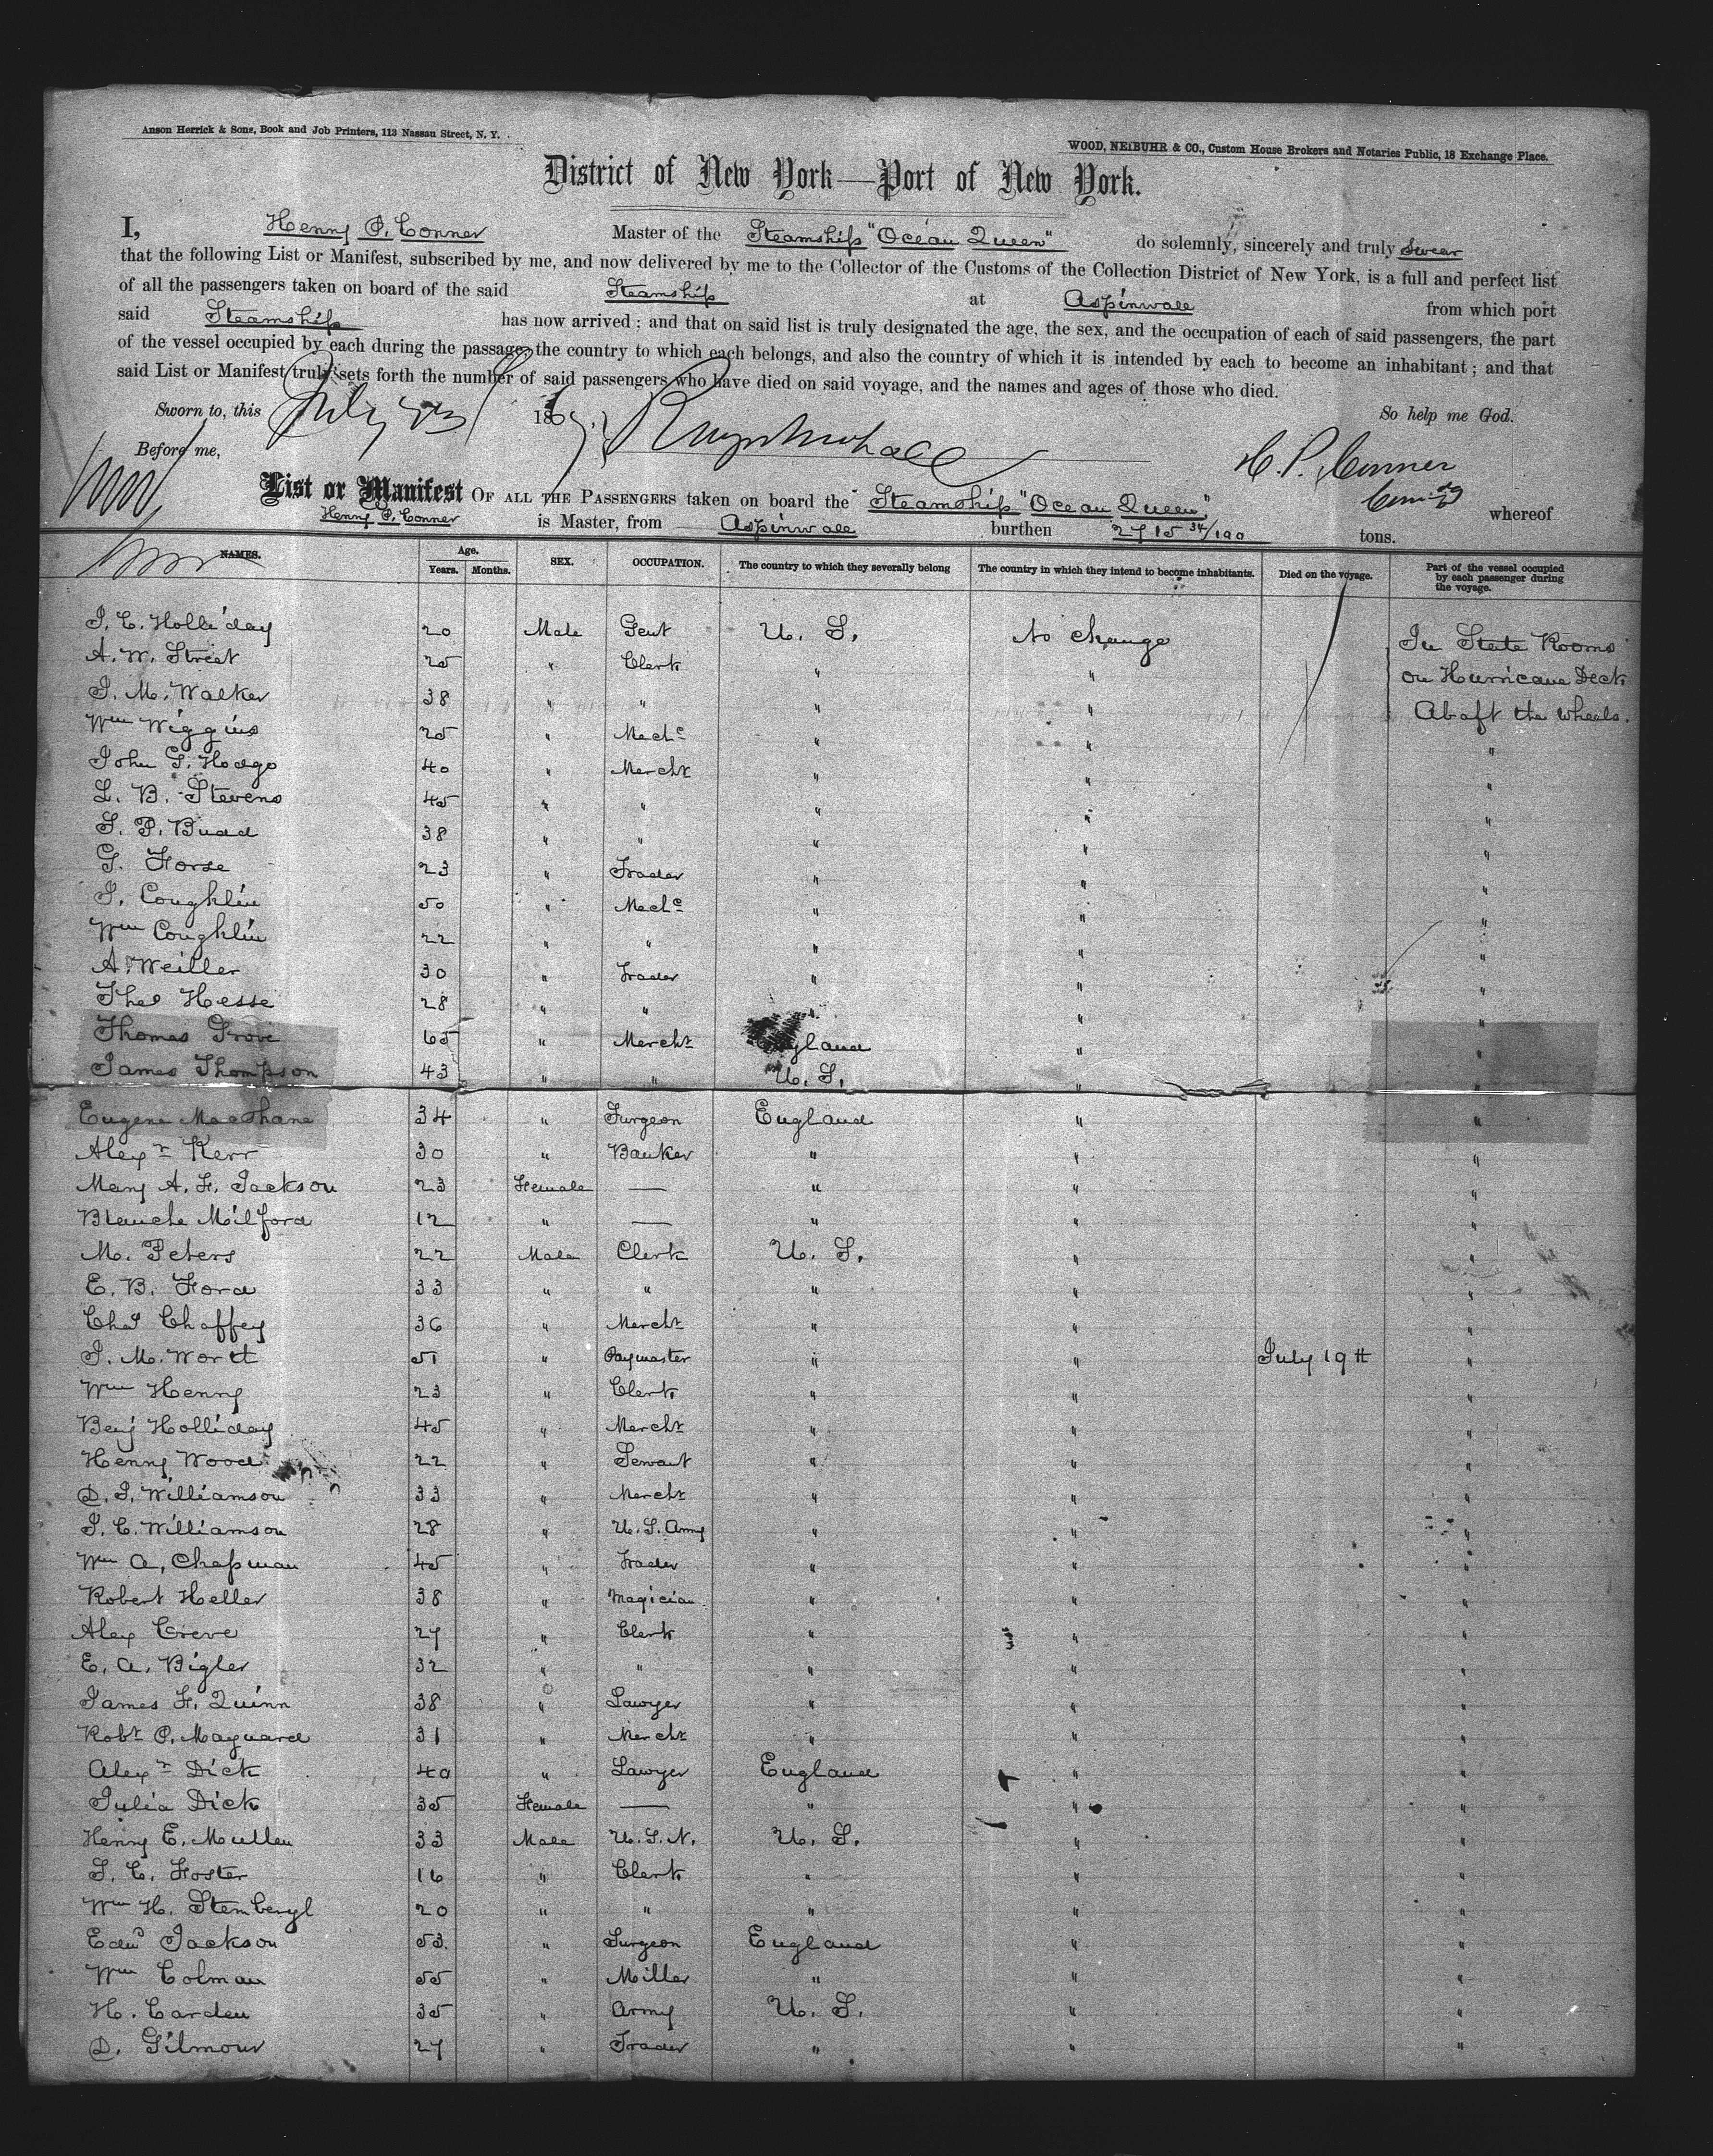 Anson Herrick & Sons, Book and Job Printers, 113 Nassau Street, N. Y.
WOOD, NEIBUHR & CO., Custom House Brokers and Notaries Public, 18 Exchange Place.
District of New York—Port of New York.
I, Henry P. Conner Master of the Steamship "Ocean Queen" do solemnly, sincerely and truly swear
that the following List or Manifest, subscribed by me, and now delivered by me to the Collector of the Customs of the Collection District of New York, is a full and perfect list
of all the passengers taken on board of the said Steamship at Aspinwall from which port
said Steamship has now arrived; and that on said list is truly designated the age, the sex, and the occupation of each of said passengers, the part
of the vessel occupied by each during the passage, the country to which each belongs, and also the country of which it is intended by each to become an inhabitant; and that
said List or Manifest truly sets forth the number of said passengers who have died on said voyage, and the names and ages of those who died.
Sworn to, this July 23 186 So help me God.
Before me, H. P. Conner
List or Manifest OF ALL THE PASSENGERS taken on board the Steamship "Ocean Queen" whereof
Henry P. Conner is Master, from Aspinwall burthen 2715 34/100 tons.
NAMES. Age. Years. Months. SEX. OCCUPATION. The country to which they severally belong The country in which they intend to become inhabitants. Died on the voyage. Part of the vessel occupied by each passenger during the voyage.
J. C. Holliday 20 Male Gent U. S. No change In State Rooms
A. W. Street 25 " Clerk " " on Hurricane Deck
J. M. Walker 38 " " " " Abaft the wheels.
Wm Wiggins 25 " Mechc " " "
John G. Hodge 40 " Mercht " " "
L. B. Stevens 45 " " " " "
S. P. Budd 38 " " " " "
G. Forse 23 " Trader " " "
J. Coughlin 50 " Mechc " " "
Wm Coughlin 22 " " " " "
A. Weiller 30 " Trader " " "
Theo Hesse 28 " " " " "
Thomas Grove 65 " Mercht England " "
James Thompson 43 " " U. S. " "
Eugene MacShane 34 " Surgeon England " "
Alexr Kerr 30 " Banker " " "
Mary A. F. Jackson 23 Female — " " "
Blanche Milford 12 " — " " "
M. Peters 22 Male Clerk U. S. " "
E. B. Ford 33 " " " " "
Chas Chaffey 36 " Mercht " " "
J. M. Wortt 51 " Paymaster " " July 19tt "
Wm Henry 23 " Clerk " " "
Benj Holliday 45 " Mercht " " "
Henry Wood 22 " Servant " " "
D. S. Williamson 33 " Mercht " " "
J. C. Williamson 28 " U. S. Army " " "
Wm A. Chapman 45 " Trader " " "
Robert Heller 38 " Magician " " "
Alex Creve 27 " Clerk " " "
E. A. Bigler 32 " " " " "
James F. Quinn 38 " Lawyer " " "
Robt P. Maynard 31 " Mercht " " "
Alexr Dick 40 " Lawyer England " "
Julia Dick 35 Female — " " "
Henry E. Mullen 33 Male U. S. N. U. S. " "
S. C. Foster 16 " Clerk " " "
Wm H. Stembergl 20 " " " " "
Edwd Jackson 53. " Surgeon England " "
Wm Colman 55 " Miller " " "
H. Carden 35 " Army U. S. " "
D. Gilmour 27 " Trader " " "